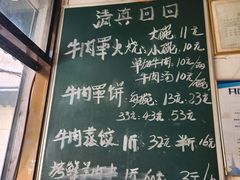 清真回回
牛肉罩火烧: 大碗 11元
小碗. 10元
单加牛肉 10元/两
牛肉汤 10元/碗
牛肉罩饼 每碗: 13元. 23元
33元. 43元 53元
牛肉蒸饺 1斤: 32元 半斤 16元